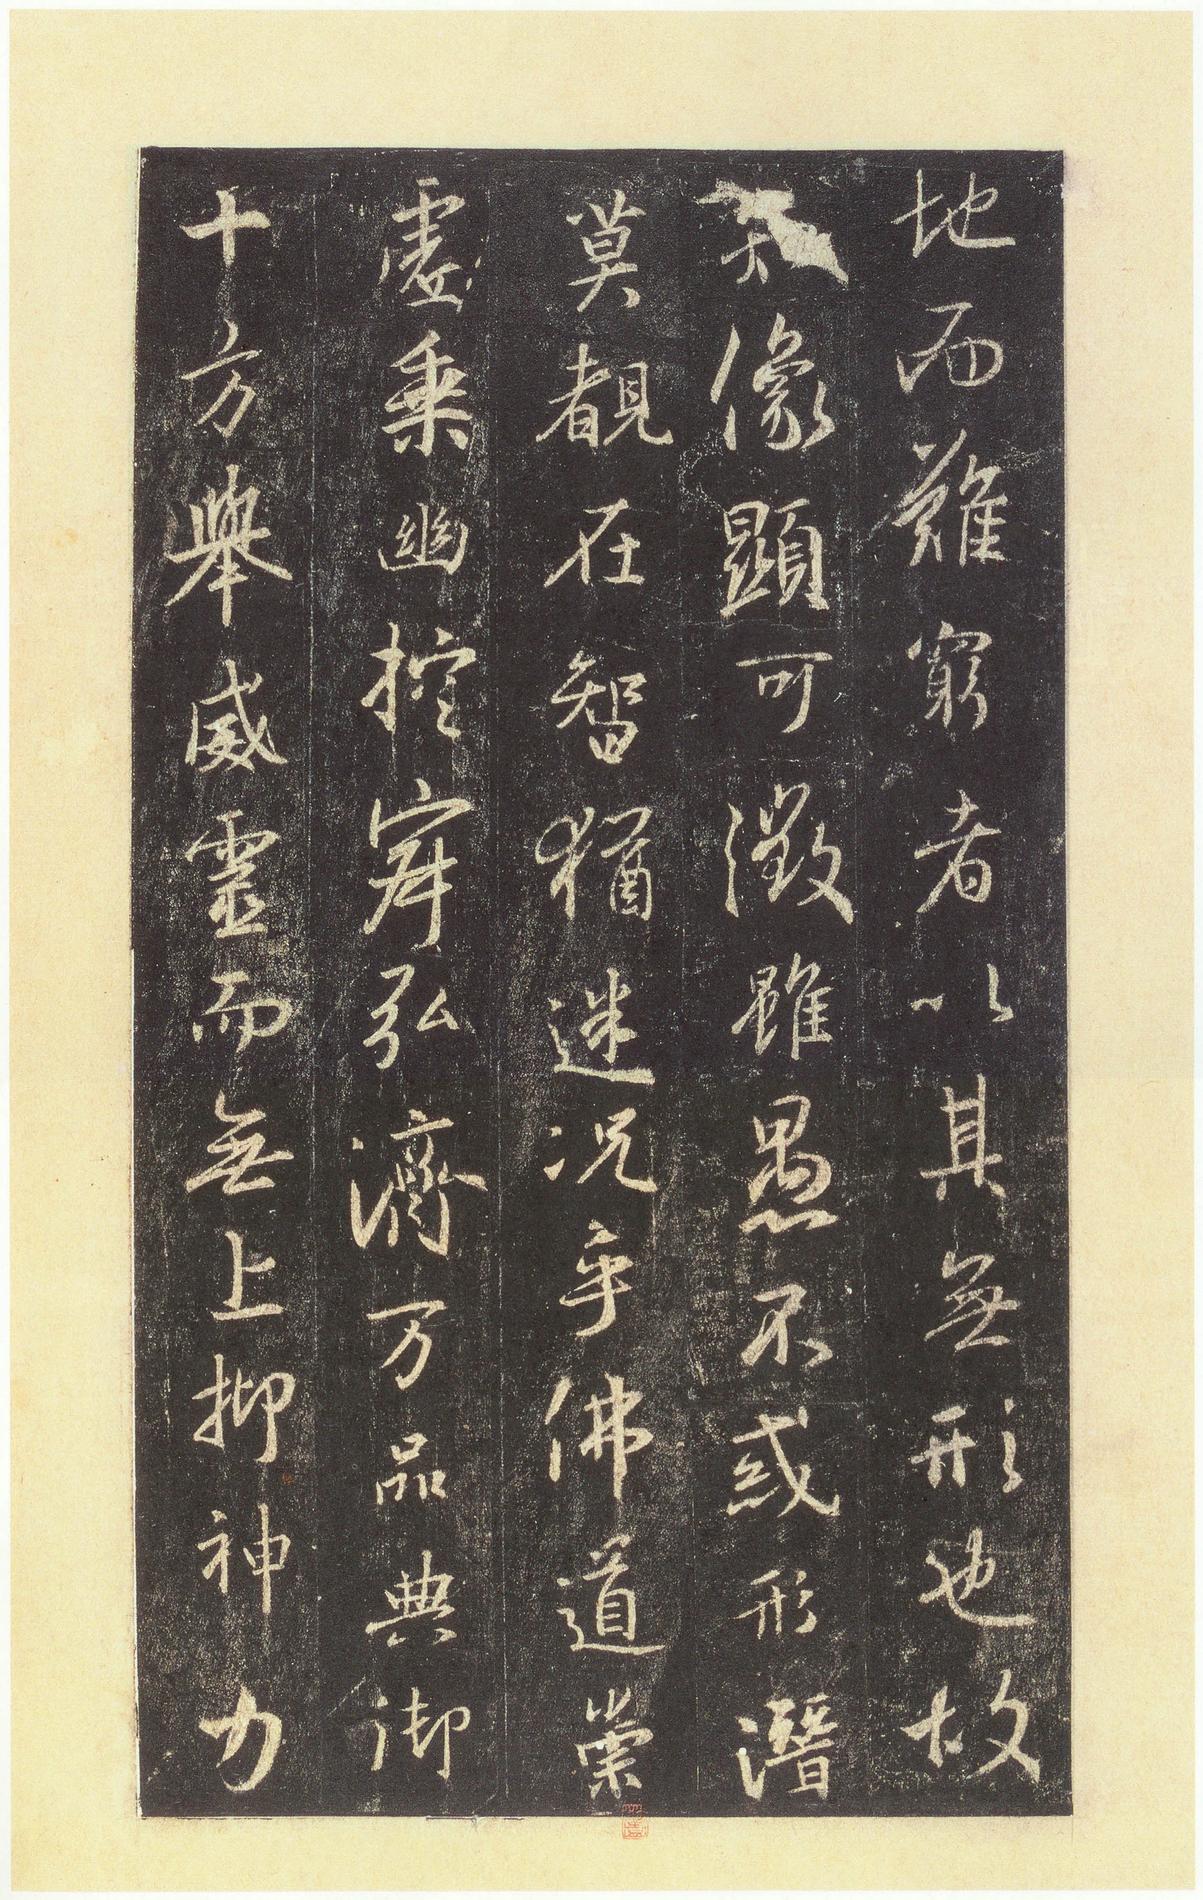 地而難窮者以其無形也故
知像顯可徵雖愚不惑形潛
莫覩在智猶迷況乎佛道崇
虛乗幽控寂弘濟万品典御
十方舉威靈而無上抑神力